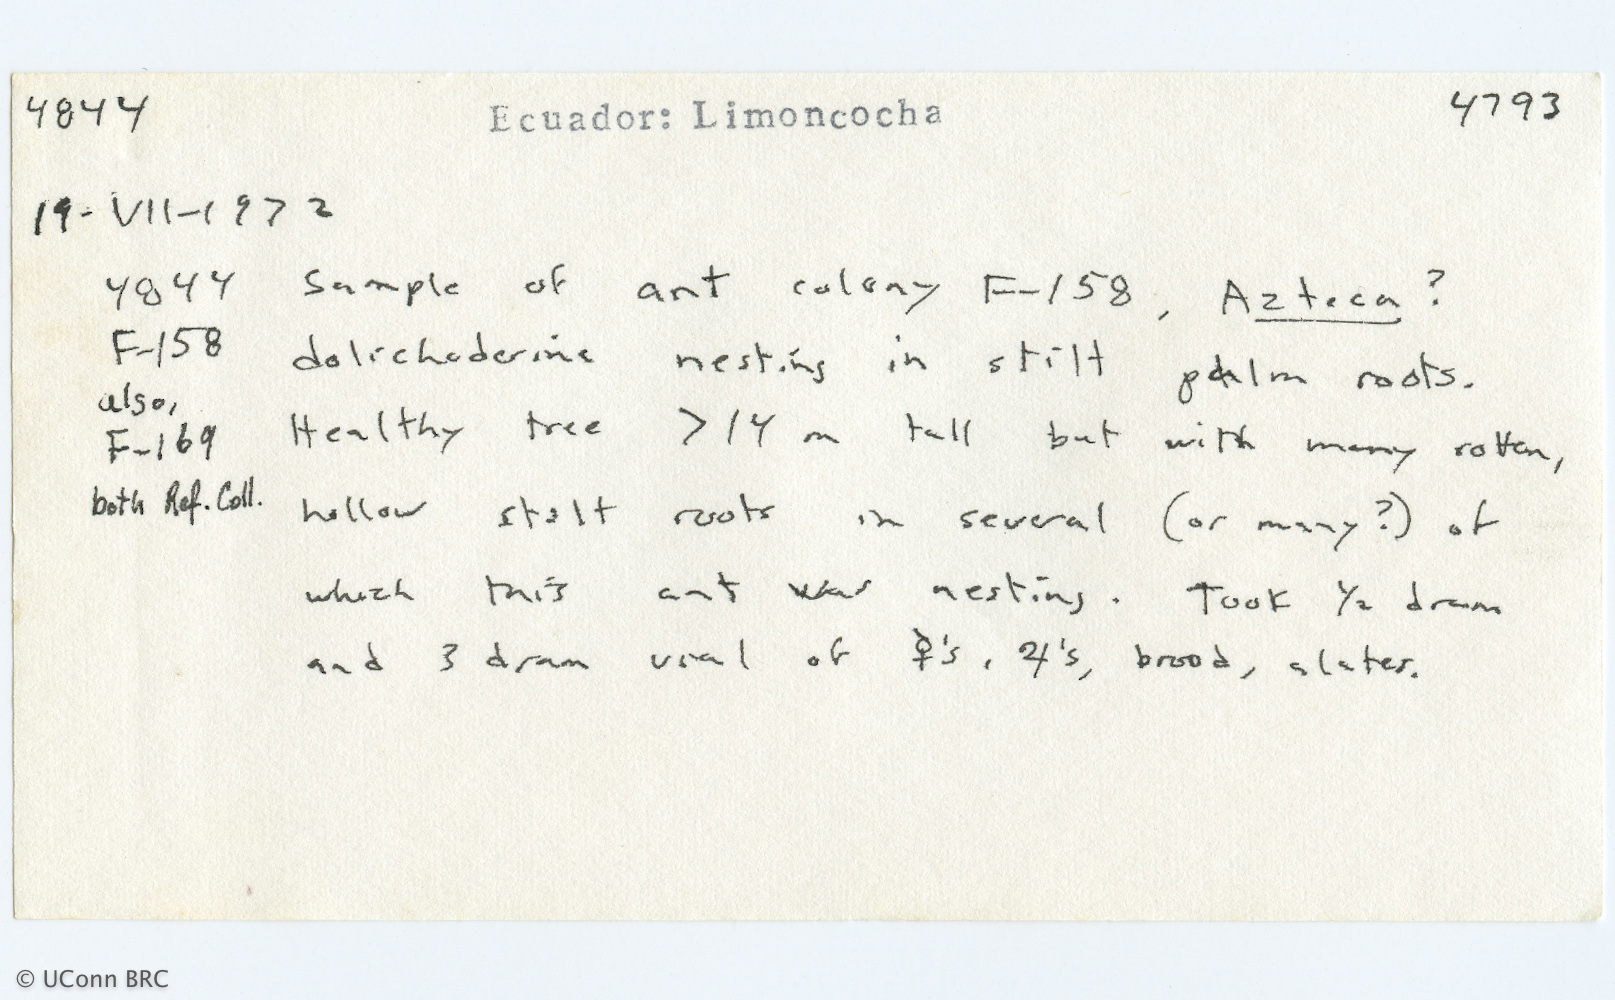 4844 Ecuador: Limoncocha 4793
19-VII-1972
4844 Sample of ant colony F-158, Azteca?
F-158 dolichoderine nesting in stilt palm roots.
also,
F-169 Healthy tree >14 m tall but with many rotten,
both Ref. Coll. hollow stilt roots in several (or many?) of
which this ant was nesting. Took 1/2 dram
and 3 dram vial of ☿'s, ♃'s, brood, alates.
© UConn BRC